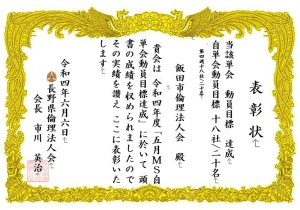 表彰状
当該単会　動員目標　達成
自単会動員目標　十八社／二十名
飯田市倫理法人会　殿
貴会は令和四年度「五月MS自
単会動員目標達成」に於いて頭
書の成績を収められましたので
その実績を讃え ここに表彰いた
します
令和四年六月六日
長野県倫理法人会
会長　市川